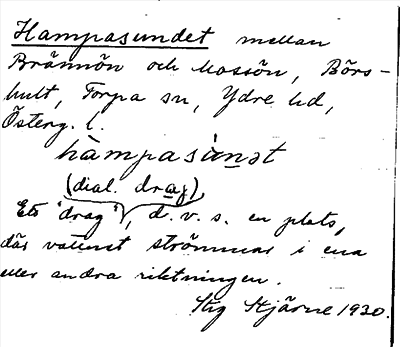 Hampasundet mellan
Brännön och Mossön, Börs-
hult, Torpa sn, Ydre hd,
Österg. l.
hàmpasùnət
(dial. drag)
Ett "drag", d.v.s. en plats,
där vattnet strömmar i ena
eller andra riktningen.
Stig Stjärne 1930.